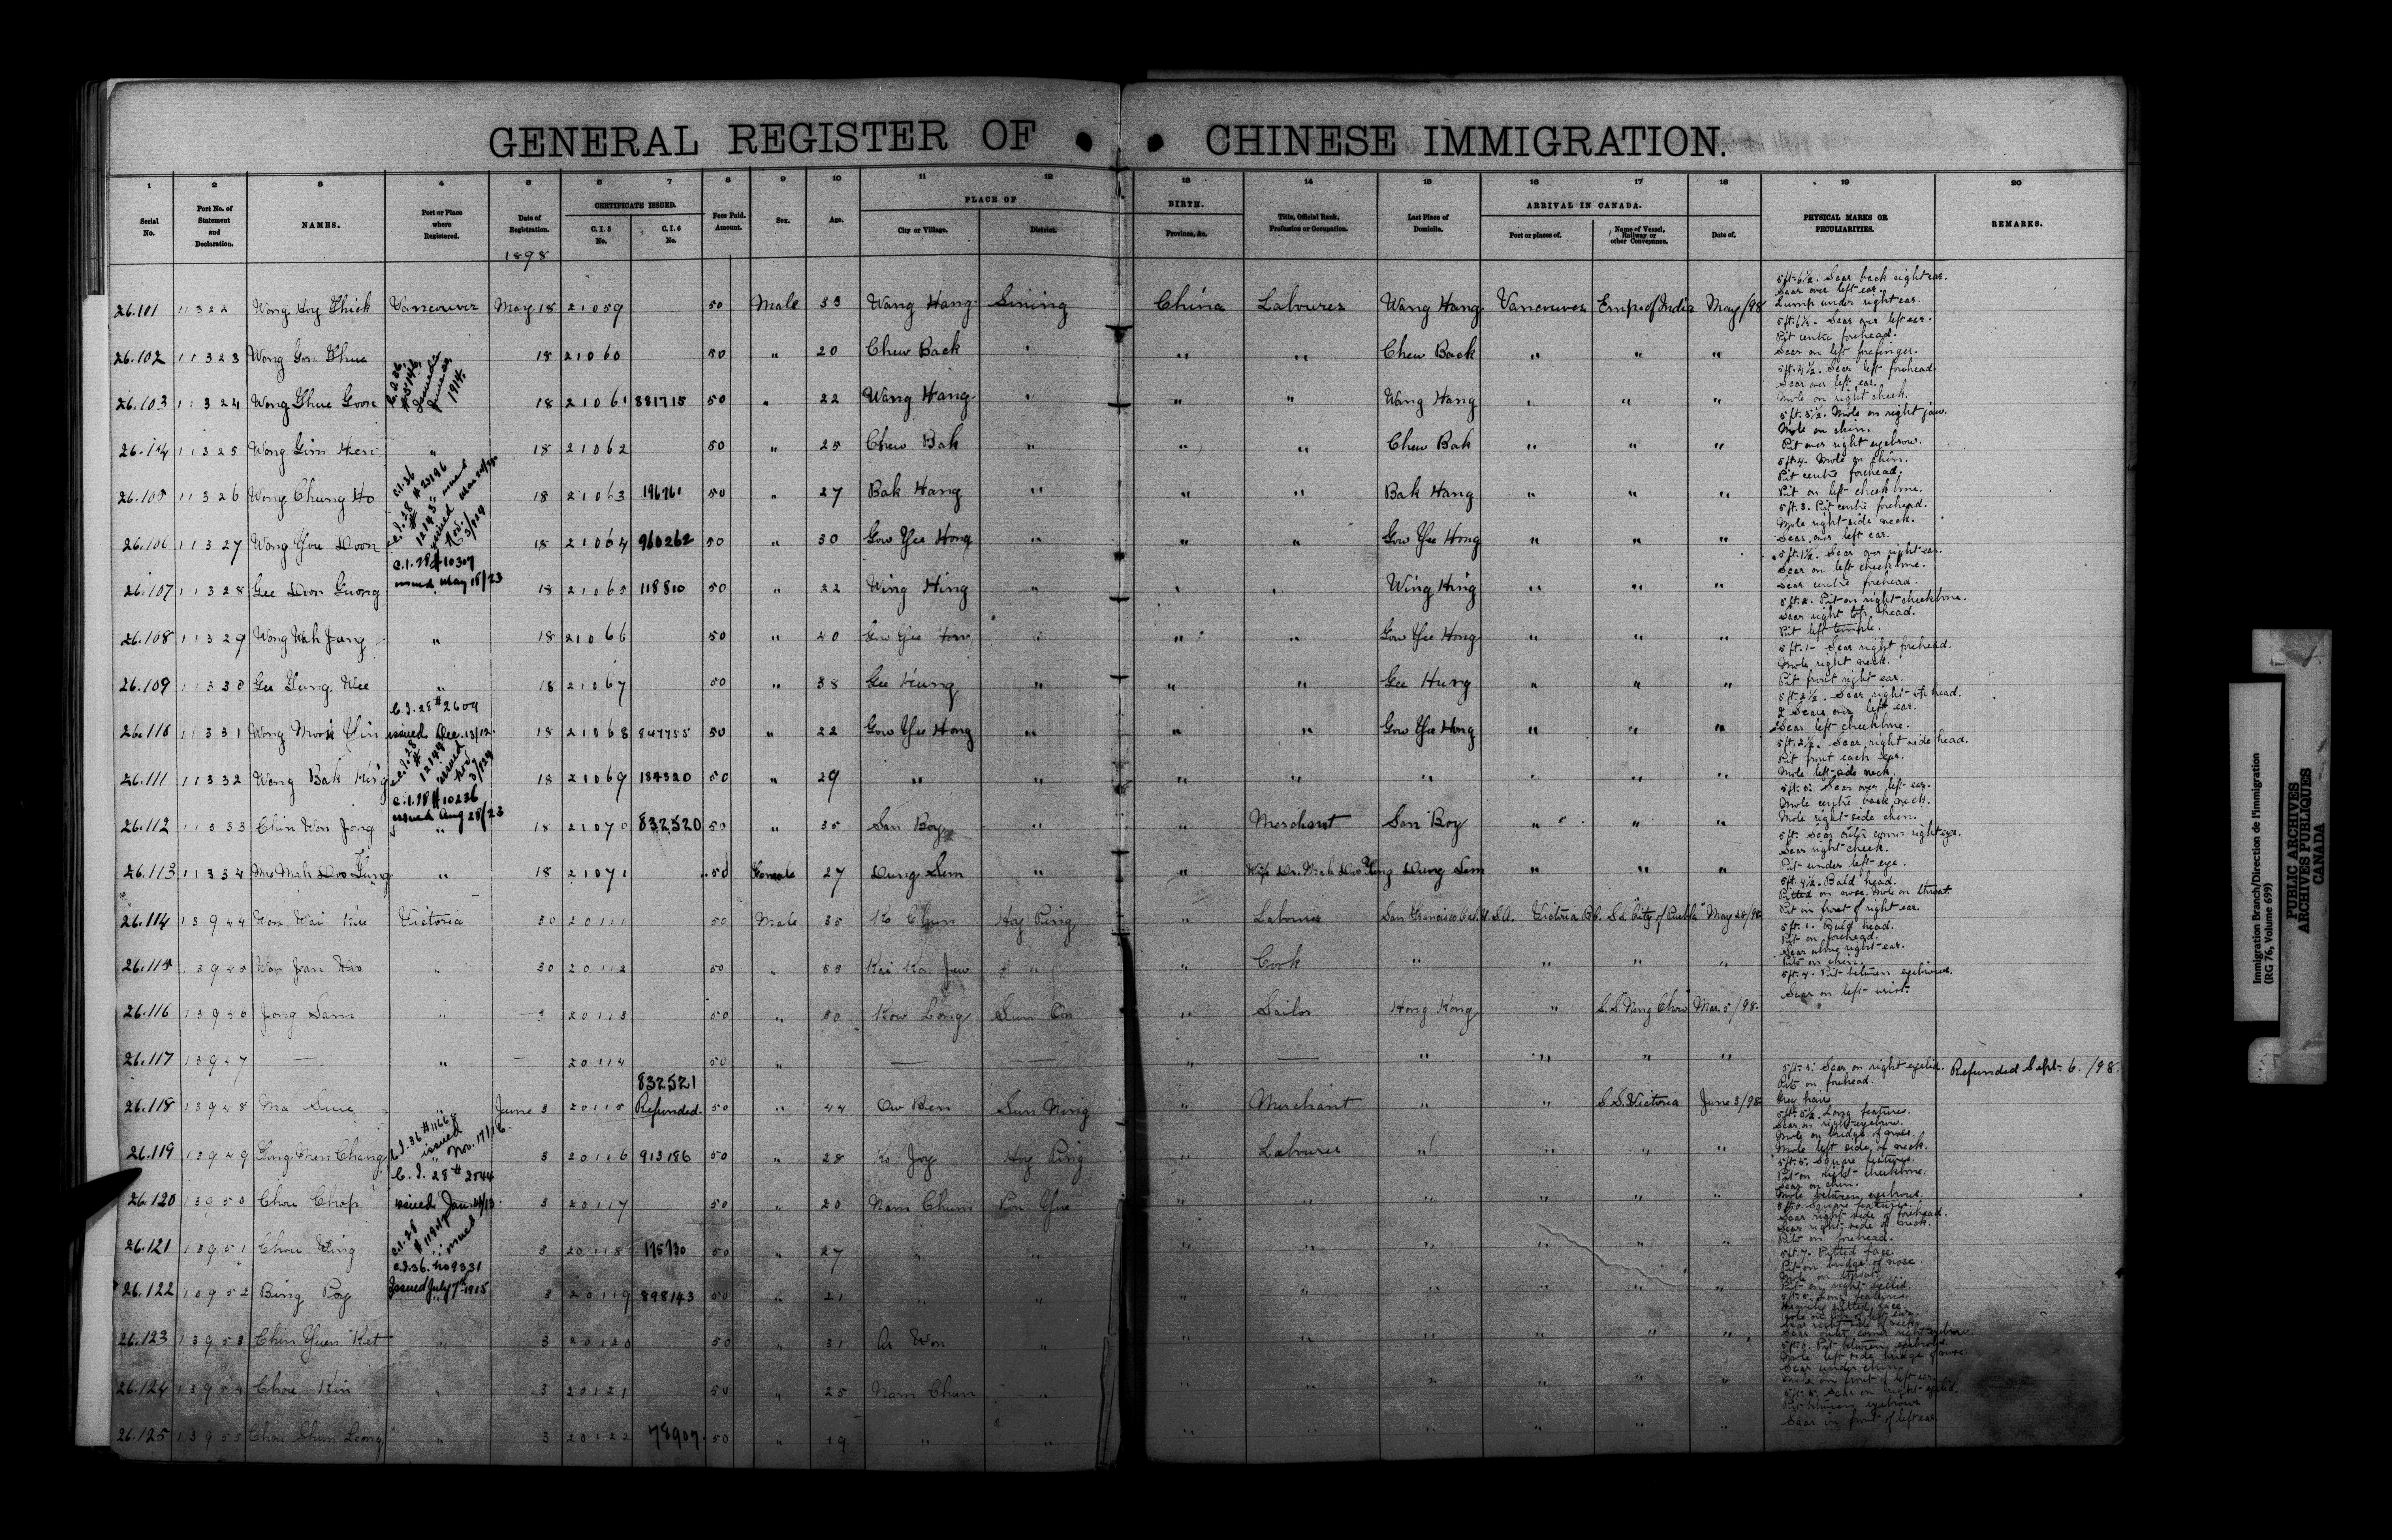 GENERAL REGISTER OF CHINESE IMMIGRATION.
1 2 3 4 5 6 7 8 9 10 11 12 13 14 15 16 17 18 19 20
CERTIFICATE ISSUED. PLACE OF BIRTH. ARRIVAL IN CANADA.
Serial No. Port No. of Statement and Declaration. NAMES. Port or Place where Registered. Date of Registration. C.I.5 No. C.I.6 No. Fees Paid. Amount. Sex. Age. City or Village. District. Province, &c. Title, Official Rank, Profession or Occupation. Last Place of Domicile. Port or places of. Name of Vessel, Railway or other Conveyance. Date of. PHYSICAL MARKS OR PECULIARITIES. REMARKS.
1898
26.101 11322 Wong Hoy Thick Vancouver May 18 21059 50 Male 33 Wang Hang Sining China Labourer Wang Hang Vancouver Emps of India May/98 5 ft. 6 1/2. Scar back right ear. Scar over left ear. Lump under right ear.
26.102 11323 Wong Gon 18 21060 50 " 20 Chew Back " " " Chew Back " " " Scar over left ear. Pit centre forehead. Scar on left forefinger.
26.103 11324 Wong Goon 1914 18 21061 881715 50 " 22 Wang Hang " " " Wang Hang " " " 5 ft. 4 1/2. Scar left forehead. Scar over left ear. Mole on right cheek.
26.104 11325 Wong Gim " 18 21062 50 " 25 Chew Bak " " " Chew Bak " " " 5 ft. 5 1/2. Mole on right jaw. Mole on chin. Pit over right eyebrow.
26.105 11326 Wong Chung Ho C.I.36 # 23196 issued 18 21063 196761 50 " 27 Bak Hang " " " Bak Hang " " " 5 ft. 4. Mole on chin. Pit centre forehead. Pit on left cheekbone.
26.106 11327 Wong You Doon C.I.28 # 12143 issued Nov. 3/924 18 21064 960262 50 " 30 Gow Yee Hong " " " Gow Yee Hong " " " 5 ft. 3. Pit centre forehead. Mole right side neck. Scar over left ear.
26.107 11328 Gee Doon Guong C.I.28 # 10307 issued May 18/23 18 21065 118810 50 " 22 Wing Hing " " " Wing Hing " " " 5 ft. 1 1/2. Scar over right ear. Scar on left cheekbone. Scar centre forehead.
26.108 11329 Wong Wah Jang " 18 21066 50 " 40 Gow Yee Hong " " " Gow Yee Hong " " " 5 ft. 2. Pit on right cheekbone. Scar right top head. Pit left temple.
26.109 11330 Gee Gung Wee " 18 21067 50 " 38 Gee Hung " " " Gee Hung " " " 5 ft. 1 - Scar right forehead. Mole right neck. Pit front right ear.
26.110 11331 Wong Mook Yin C.I.28 # 2609 issued Dec. 13/12. 18 21068 847755 50 " 22 Gow Yee Hong " " " Gow Yee Hong " " " Scar right top head. 2 Scars over left ear. Scar left cheekbone.
26.111 11332 Wong Bak King C.I.28 # 12144 issued Nov. 3/924 18 21069 184320 50 " 29 " " " " " " " " 5 ft. 2 1/2. Scar right side head. Pit front each ear. Mole left side neck.
26.112 11333 Chin Won Jong C.I.28 # 10236 issued Aug 28/23 18 21070 832520 50 " 35 San Boy " " Merchant San Boy " " " Scar over left ear. Mole centre back neck. Mole right side chin.
26.113 11334 Mrs Mah Doo Gung " 18 21071 50 Female 27 Dung Sem " " Wife Dr. Mah Doo Gung Dung Sem " " " 5 ft. Scar outer corner right eye. Scar right cheek. Pit under left eye.
26.114 13944 Won Wai Kee Victoria 30 20111 50 Male 35 Ko Chun Hoy Ping " Labourer San Francisco Cal. U.S.A. Victoria B.C. S.S. "City of Puebla" May 28/98 5 ft. 4 1/2. Bald head. Pitted on nose. Mole on throat. Pit in front of right ear.
26.115 13945 Won Joan " 30 20112 50 " 53 Kai " " Cook " " " " 5 ft. 1. Bald head. Pit on forehead. Scar along right ear. Pits on chin.
26.116 13946 Jong Sam " 3 20113 50 " 50 Kow Long Sun On " Sailor Hong Kong " S.S. "Nang Chow" Mar. 5/98. 5 ft. 4. Pit between eyebrows. Scar on left wrist.
26.117 13947 — " — 20114 50 " — — " — " " " "
26.118 13948 Ma Suie " June 3 20115 832521 Refunded. 50 " 44 Ow Ben Sun Ning " Merchant " " S.S. Victoria June 3/98 5 ft. 3. Scar on right eyelid. Pits on forehead. Grey hair Refunded Sept. 6./98.
26.119 13949 Chang C.I.36 # 1166 issued Nov. 17/16. 3 20116 913186 50 " 28 Ko Joy Hoy Ping " Labourer " " " " 5 ft. 5 1/2. Long features. Scar on right eyebrow. Mole on bridge of nose. Mole left side of neck.
26.120 13950 Chou Chop C.I. 28 # 2544 issued Jan. 3 20117 50 " 20 Nam Chum Pon Yue " " " " " " 5 ft. 5. Square features. Pit on right cheekbone. Scar on chin. Mole between eyebrows.
26.121 13951 Chou Ying C.I.28 issued 3 20118 175730 50 " 27 " " " " " " " " Square features. Scar right side of forehead. Scar right side of neck. Pits on forehead.
26.122 13952 Bing Poy C.I.36. No 9331 Issued July 7th 1915 3 20119 898143 50 " 21 " " " " " " " " 5 ft. 7. Pitted face. Pit on bridge of nose. Mole on throat. Pit on right eyelid.
26.123 13953 Chin Yuen Ket " 3 20120 50 " 31 Ar Won " " " " " " " Scar outer corner right eyebrow.
26.124 13954 Chou Kin " 3 20121 50 " 25 Nam Chun " " " " " " " Pit between eyebrows. Mole left side bridge of nose. Scar under chin. Mole in front of left ear.
26.125 13955 Chou Shun Leong " 3 20122 78907 50 " 19 " " " " " " " " Scar on right eyelid. Pit between eyebrows Scar in front of left ear
Immigration Branch/Direction de l'immigration
(RG 76, Volume 699)
PUBLIC ARCHIVES
ARCHIVES PUBLIQUES
CANADA